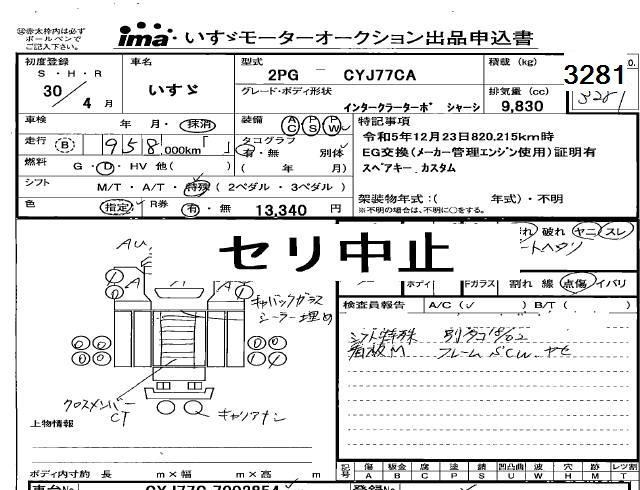 ㊟赤太枠内は必ず
ボールペンで
ご記入下さい。
ima いすゞモーターオークション出品申込書
初度登録 S・H・R 30/4 月
車名 いすゞ
型式 2PG - CYJ77CA
積載 (kg)
グレード・ボディ形状 インタークラーターボ シャーシ
排気量 (cc) 9,830
3281
3281
車検 年 月・抹消
装備 AC PS PW
特記事項
走行 B 958,000km
タコグラフ 有・無 別体 ( 年 月)
令和5年12月23日820,215km時
EG交換(メーカー管理エンジン使用)証明有
スペアキー カスタム
燃料 G・D・HV 他( )
シフト M/T・A/T・特殊 (2ペダル・3ペダル)
架装物年式:( 年式)・不明
※不明の場合は、不明に○をする。
色 指定 R券 有・無 13,340 円
セリ中止
破れ ヤニ スレ
シートヘタリ
ボディ Fガラス 割れ 線 点傷 イバリ
検査員報告 A/C(✓) B/T( )
AU
A A
キャバックガラス
シーラー埋め
シフト特殊
看板M フレームSCW
クロスメンバー
CT
上物情報
ボディ内寸約 長 m×幅 m×高 m
記号 傷A 板金B 腐C 塗P 錆S 凹凸曲U 波W 穴H 跡M レツ割T
車台No. CYJ77C-7002854
登録No.